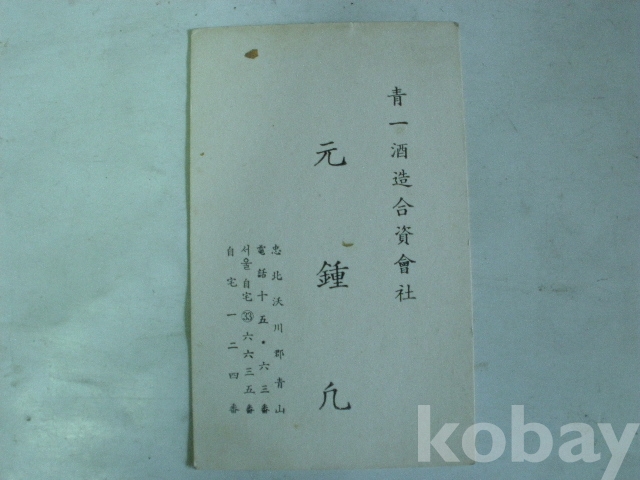 青一酒造合資會社
元鍾凢
忠北沃川郡青山
電話十五•六三番
서울自宅㉝六六三五番
自宅一二四番
kobay